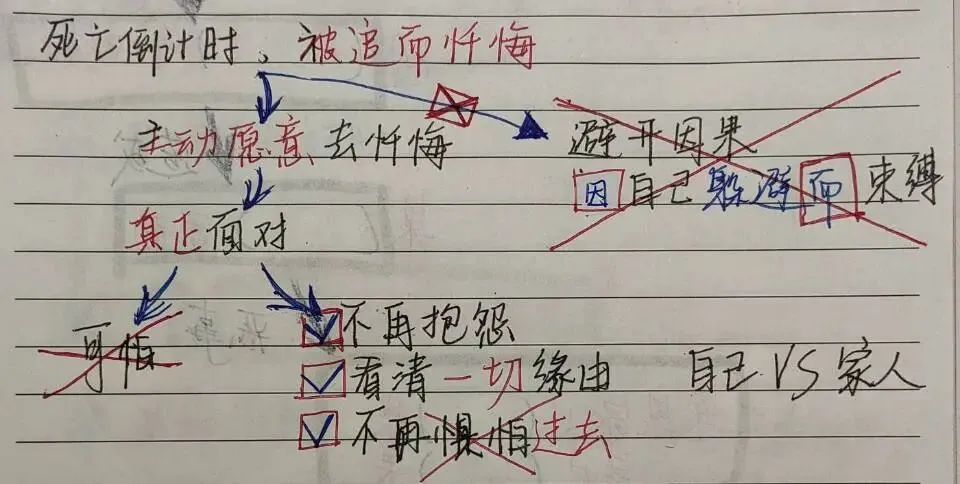 死亡倒计时，被追而忏悔
主动愿意去忏悔
避开因果
因自己躲避而束缚
真正面对
可怕
不再抱怨
看清一切缘由
自己VS家人
不再惧怕过去